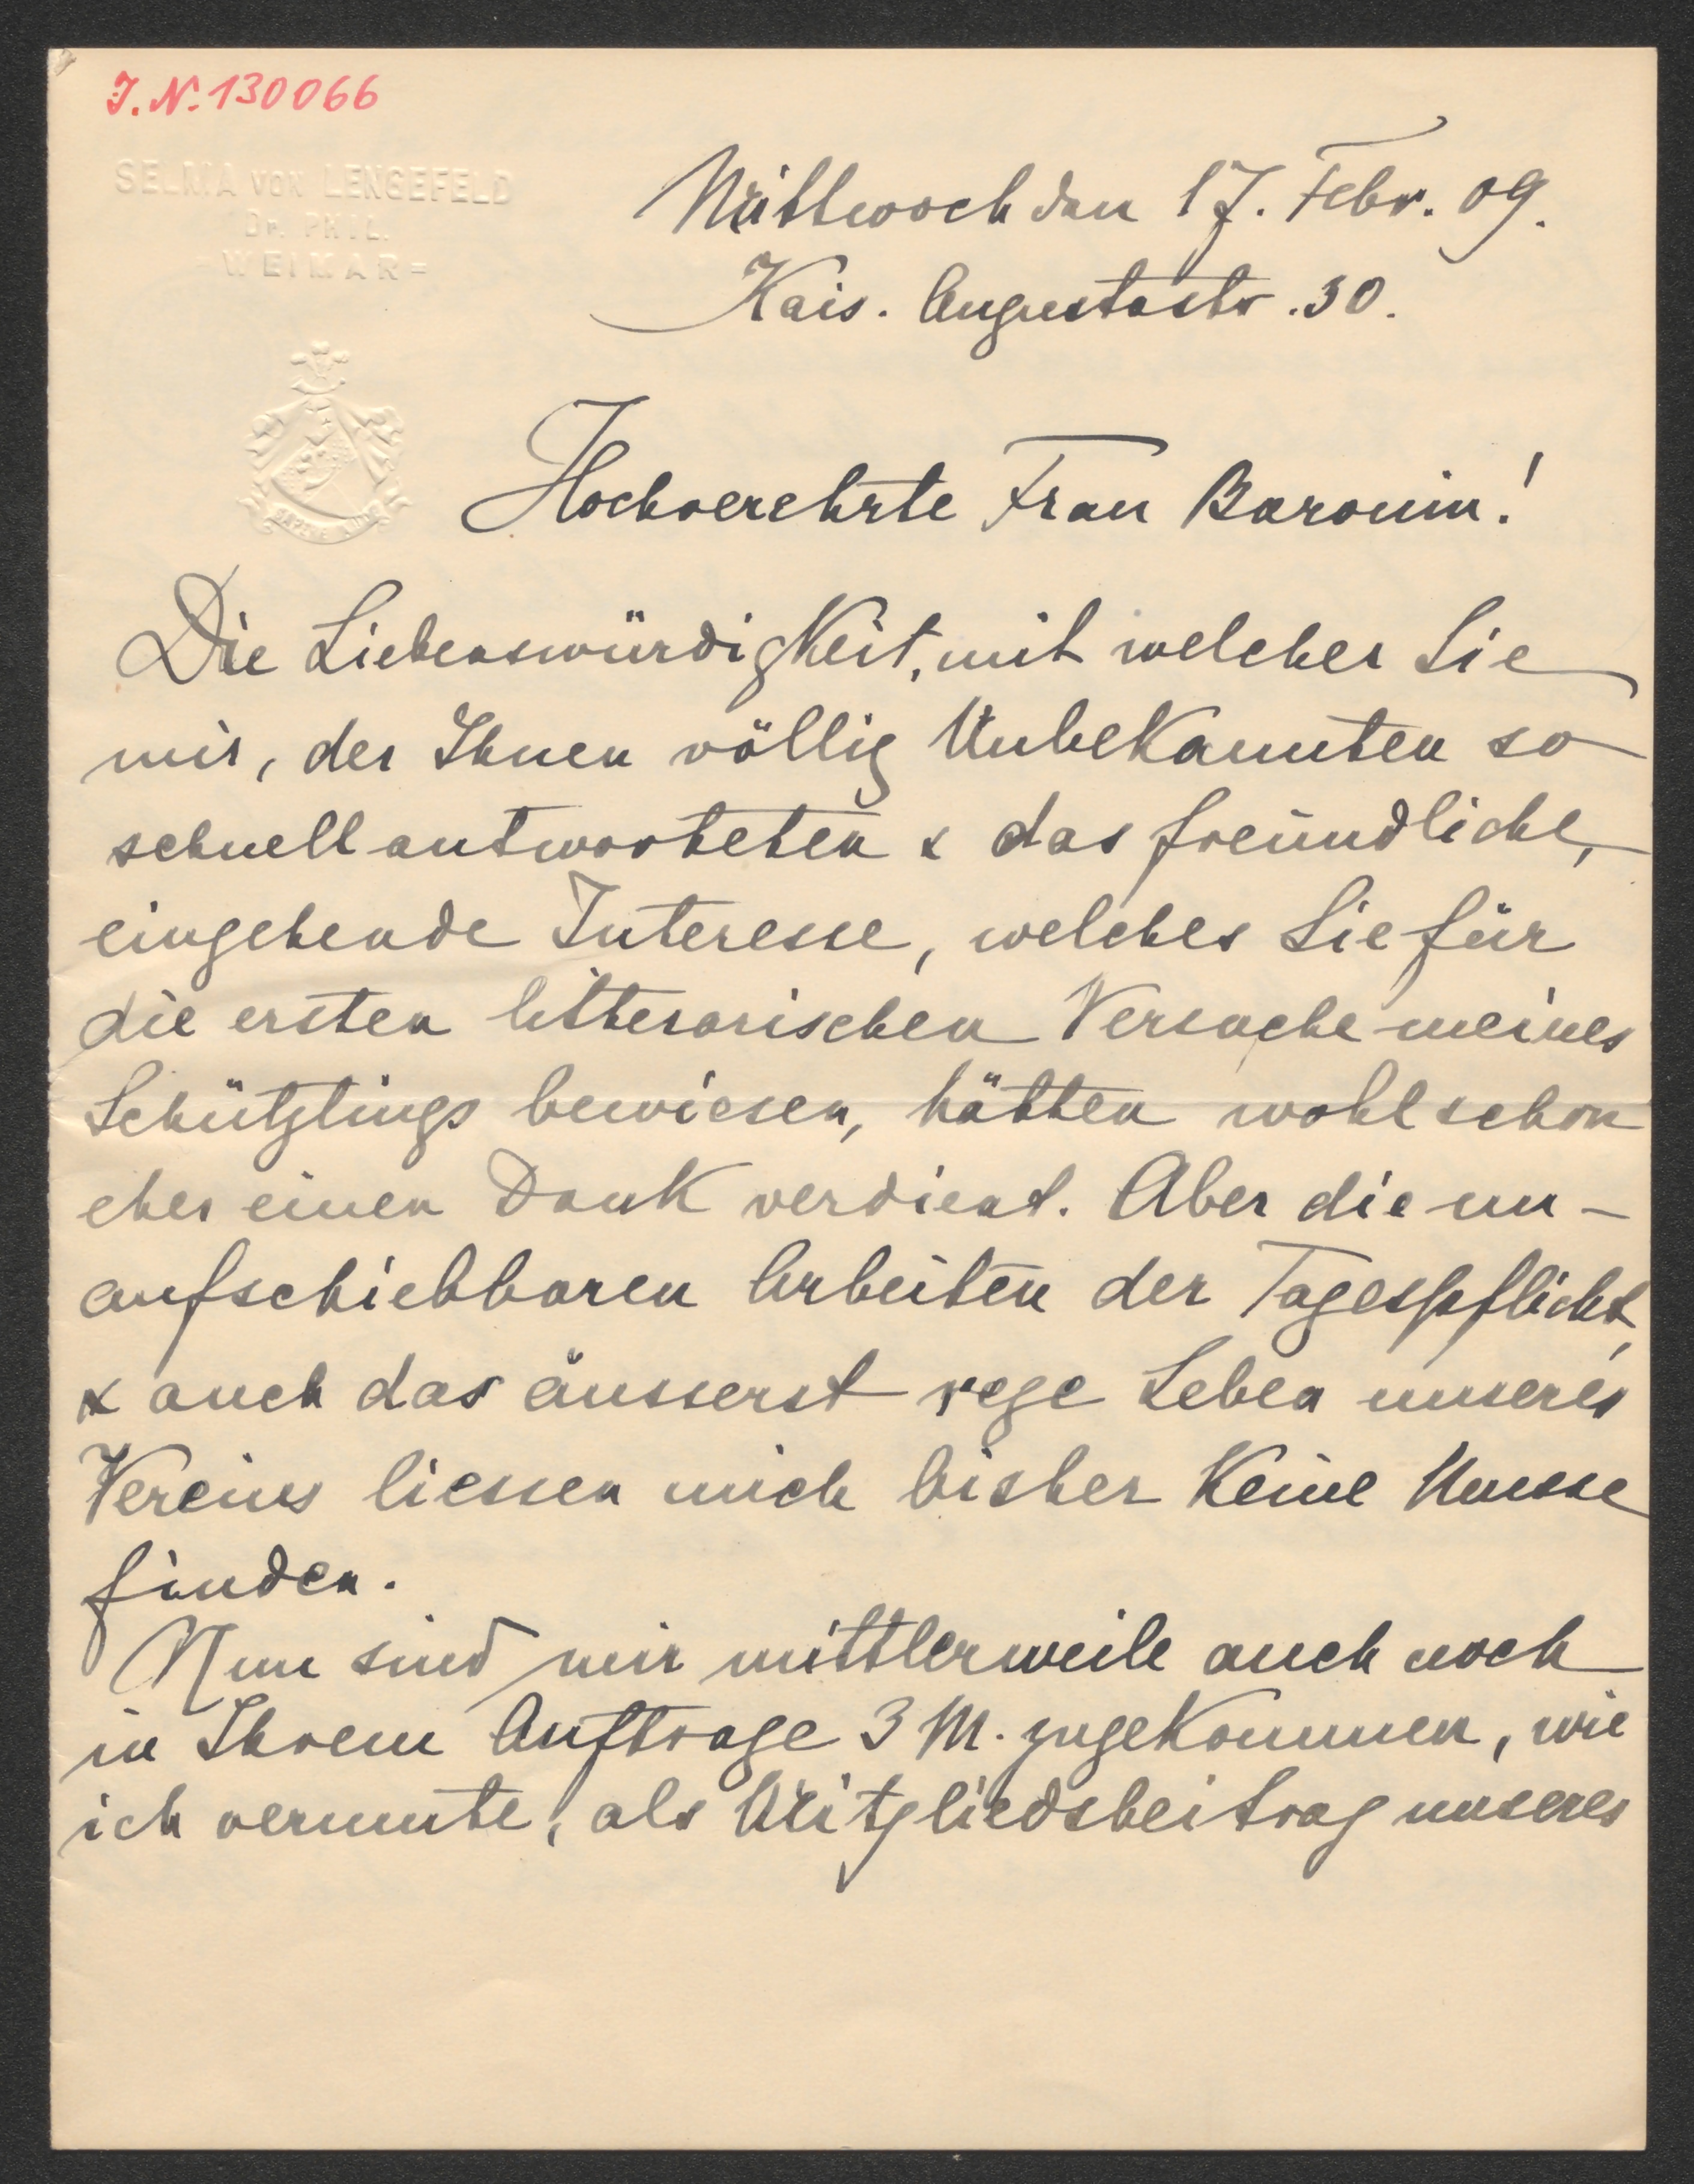 J. N. 130066
SELMA VON LENGEFELD
DR. PHIL.
= WEIMAR =
Mittwoch den 17. Febr. 09.
Kais. Augustastr. 30.
SAPERE AUDE
Hochverehrte Frau Baronin!
Die Liebenswürdigkeit, mit welcher Sie
mir, der Ihnen völlig Unbekannten so
schnell antworteten & das freundliche,
eingehende Interesse, welches Sie für
die ersten litterarischen Versuche meines
Schützlings bewiesen, hätten wohl schon
eher einen Dank verdient. Aber die un-
aufschiebbaren Arbeiten der Tagespflicht,
& auch das äusserst rege Leben unseres
Vereins liessen mich bisher keine Musse
finden.
Nun sind mir mittlerweile auch noch
in Ihrem Auftrage 3 M. zugekommen, wie
ich vermute, als Mitgliedsbeitrag unseres